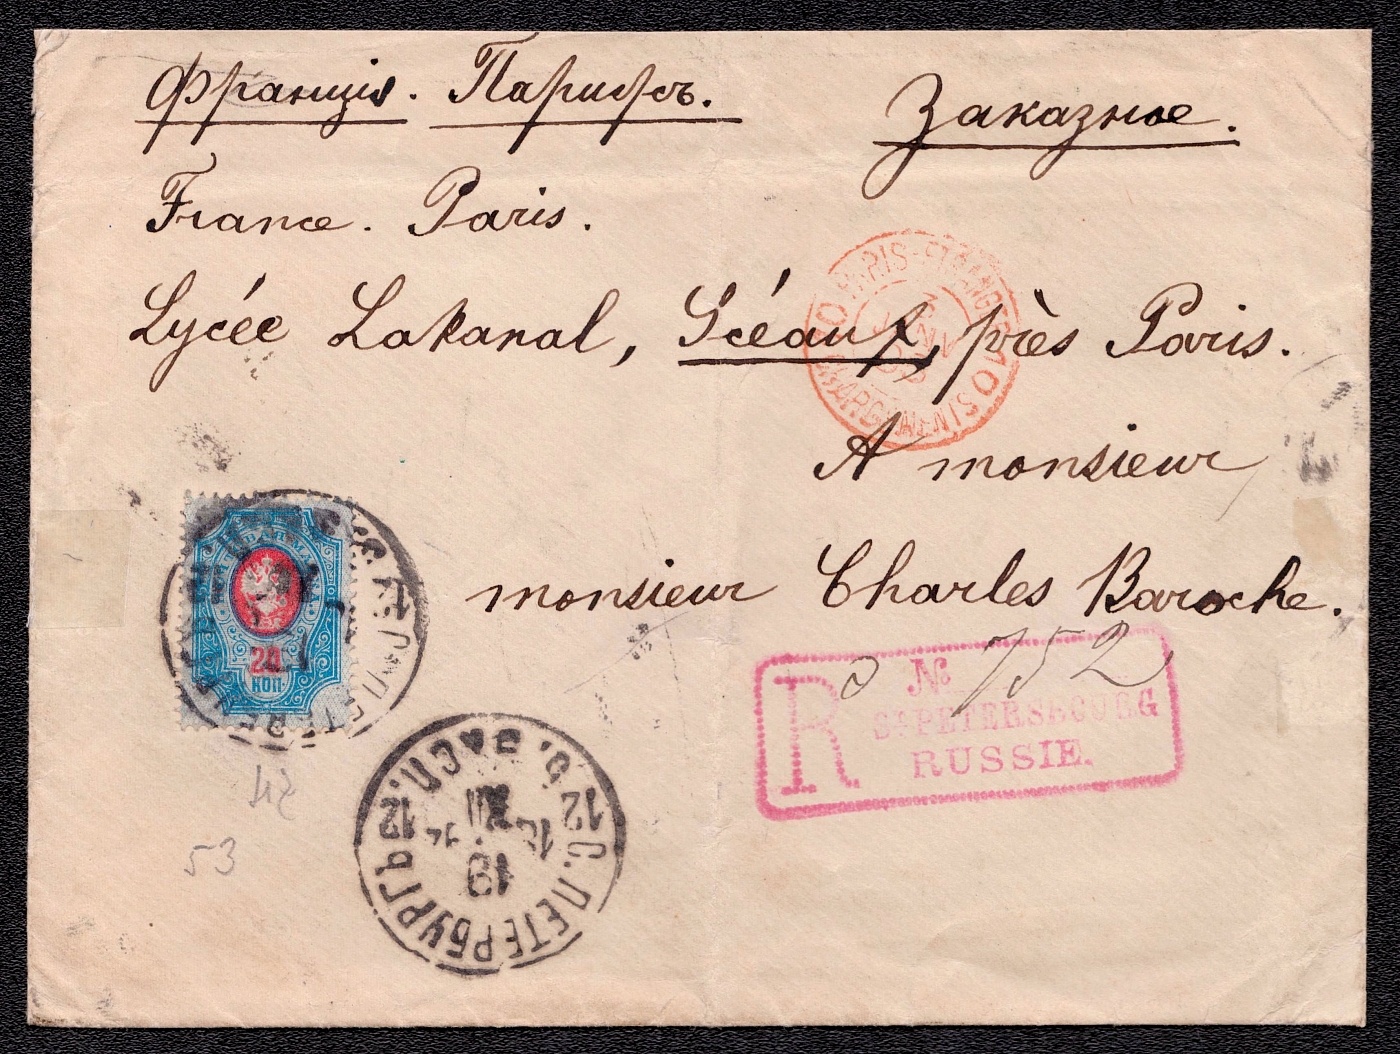 Франція. Парижъ.
Заказное.
France. Paris.
Lycée Lakanal, Scéaux, près Paris.
A monsieur
monsieur Charles Baroche.
PARIS-ETRANGER
CHARGEMENTS
3
JANV
20
КОП
№ 752
R
ST PETERSBOURG
RUSSIE.
С. ПЕТЕРБУРГЪ
12
12
XII
19
42
53